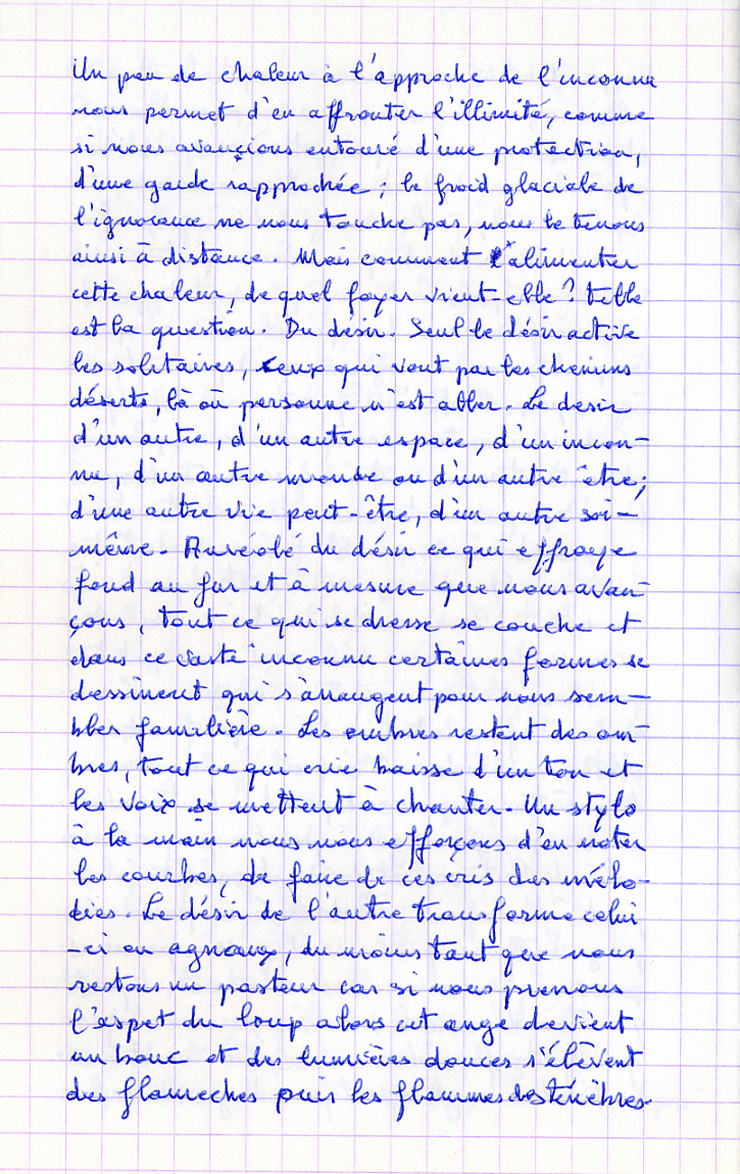 Un peu de chaleur à l'approche de l'inconnu
nous permet d'en affronter l'illimité, comme
si nous avançions entouré d'une protection,
d'une garde rapprochée ; le froid glaciale de
l'ignorance ne nous touche pas, nous le tenons
ainsi à distance. Mais comment l'alimenter
cette chaleur, de quel foyer vient-elle ? telle
est la question. Du désir. Seul le désir active
les solitaires, ceux qui vont par les chemins
déserts, là où personne n'est aller. Le desir
d'un autre, d'un autre espace, d'un incon-
nu, d'un autre monde ou d'un autre être ;
d'une autre vie peut-être, d'un autre soi-
même. Auréolé du désir ce qui effraye
fond au fur et à mesure que nous avan-
çons, tout ce qui se dresse se couche et
dans ce vaste inconnu certaines formes se
dessinent qui s'arrangent pour nous sem-
bler familière. Les ombres restent des om-
bres, tout ce qui crie baisse d'un ton et
les voix se mettent à chanter. Un stylo
à la main nous nous efforçons d'en noter
les courbes, de faire de ces cris des mélo-
dies. Le désir de l'autre transforme celui
-ci en agneaux, du moins tant que nous
restons un pasteur car si nous prenons
l'aspet du loup alors cet ange devient
un bouc et des lumières douces s'élèvent
des flameches puis les flammes des ténèbres.